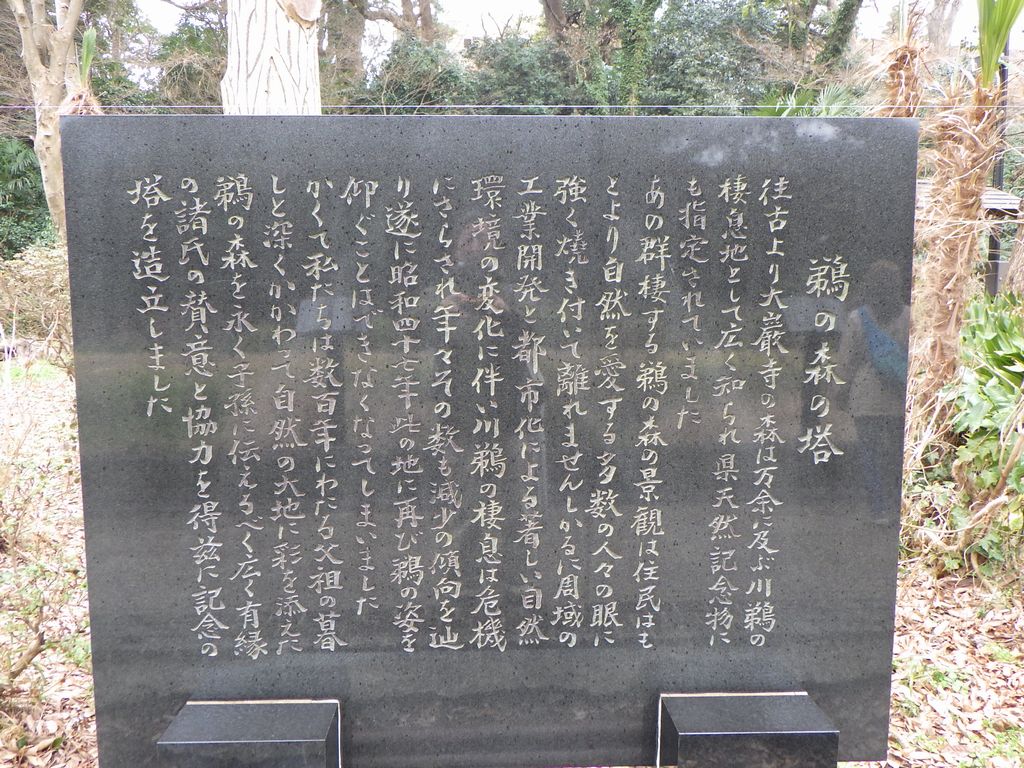 鵜の森の塔
往古より大巌寺の森は万余に及ぶ川鵜の
棲息地として広く知られ県天然記念物に
も指定されていました
あの群棲する鵜の森の景観は住民はも
とより自然を愛する多数の人々の眼に
強く焼き付いて離れませんしかるに周域の
工業開発と都市化による著しい自然
環境の変化に伴い川鵜の棲息は危機
にさらされ年々その数も減少の傾向を辿
り遂に昭和四十七年此の地に再び鵜の姿を
仰ぐことはできなくなってしまいました
かくて私たちは数百年にわたる父祖の暮
しと深くかかわって自然の大地に彩を添えた
鵜の森を永く子孫に伝えるべく広く有縁
の諸氏の賛意と協力を得茲に記念の
塔を造立しました